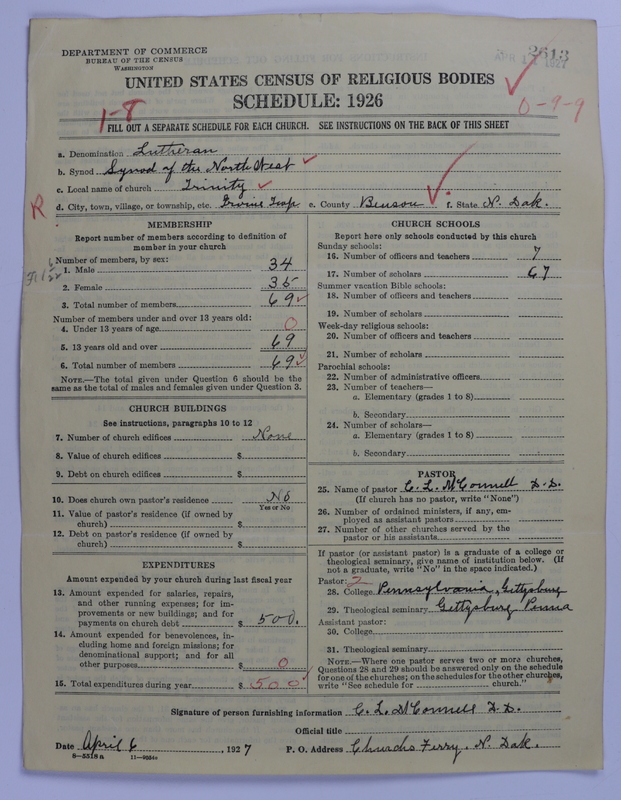 DEPARTMENT OF COMMERCE
BUREAU OF THE CENSUS
WASHINGTON
2613
APR 11 1927
UNITED STATES CENSUS OF RELIGIOUS BODIES
SCHEDULE: 1926
1-8
0-9-9
FILL OUT A SEPARATE SCHEDULE FOR EACH CHURCH. SEE INSTRUCTIONS ON THE BACK OF THIS SHEET
a. Denomination Lutheran
b. Synod Synod of the North West
c. Local name of church Trinity
R
d. City, town, village, or township, etc. Irvine Twp. e. County Benson f. State N. Dak.
MEMBERSHIP
Report number of members according to definition of member in your church
Number of members, by sex:
1. Male 34
2. Female 35
3. Total number of members 69
Number of members under and over 13 years old:
4. Under 13 years of age 0
5. 13 years old and over 69
6. Total number of members 69
NOTE.—The total given under Question 6 should be the
same as the total of males and females given under Question 3.
CHURCH BUILDINGS
See instructions, paragraphs 10 to 12
7. Number of church edifices None
8. Value of church edifices $
9. Debt on church edifices $
10. Does church own pastor's residence No
Yes or No
11. Value of pastor's residence (if owned by
church) $
12. Debt on pastor's residence (if owned by
church) $
EXPENDITURES
Amount expended by your church during last fiscal year
13. Amount expended for salaries, repairs,
and other running expenses; for im-
provements or new buildings; and for
payments on church debt $ 500.
14. Amount expended for benevolences, in-
cluding home and foreign missions; for
denominational support; and for all
other purposes $ 0
15. Total expenditures during year $ 500
CHURCH SCHOOLS
Report here only schools conducted by this church
Sunday schools:
16. Number of officers and teachers 7
17. Number of scholars 67
Summer vacation Bible schools:
18. Number of officers and teachers
19. Number of scholars
Week-day religious schools:
20. Number of officers and teachers
21. Number of scholars
Parochial schools:
22. Number of administrative officers
23. Number of teachers—
a. Elementary (grades 1 to 8)
b. Secondary
24. Number of scholars—
a. Elementary (grades 1 to 8)
b. Secondary
PASTOR
25. Name of pastor C. L. McConnell D.D.
(If church has no pastor, write "None")
26. Number of ordained ministers, if any, em-
ployed as assistant pastors
27. Number of other churches served by the
pastor or his assistants
If pastor (or assistant pastor) is a graduate of a college or
theological seminary, give name of institution below. (If
not a graduate, write "No" in the space indicated.)
Pastor: 2
28. College Pennsylvania, Gettysburg
29. Theological seminary Gettysburg Penna
Assistant pastor:
30. College
31. Theological seminary
NOTE.—Where one pastor serves two or more churches,
Questions 28 and 29 should be answered only on the schedule
for one of the churches; on the schedules for the other churches,
write "See schedule for church."
Signature of person furnishing information C. L. McConnell D.D.
Official title
Date April 6, 1927 P. O. Address Churchs Ferry, N. Dak.
8-5518a 11-9354c